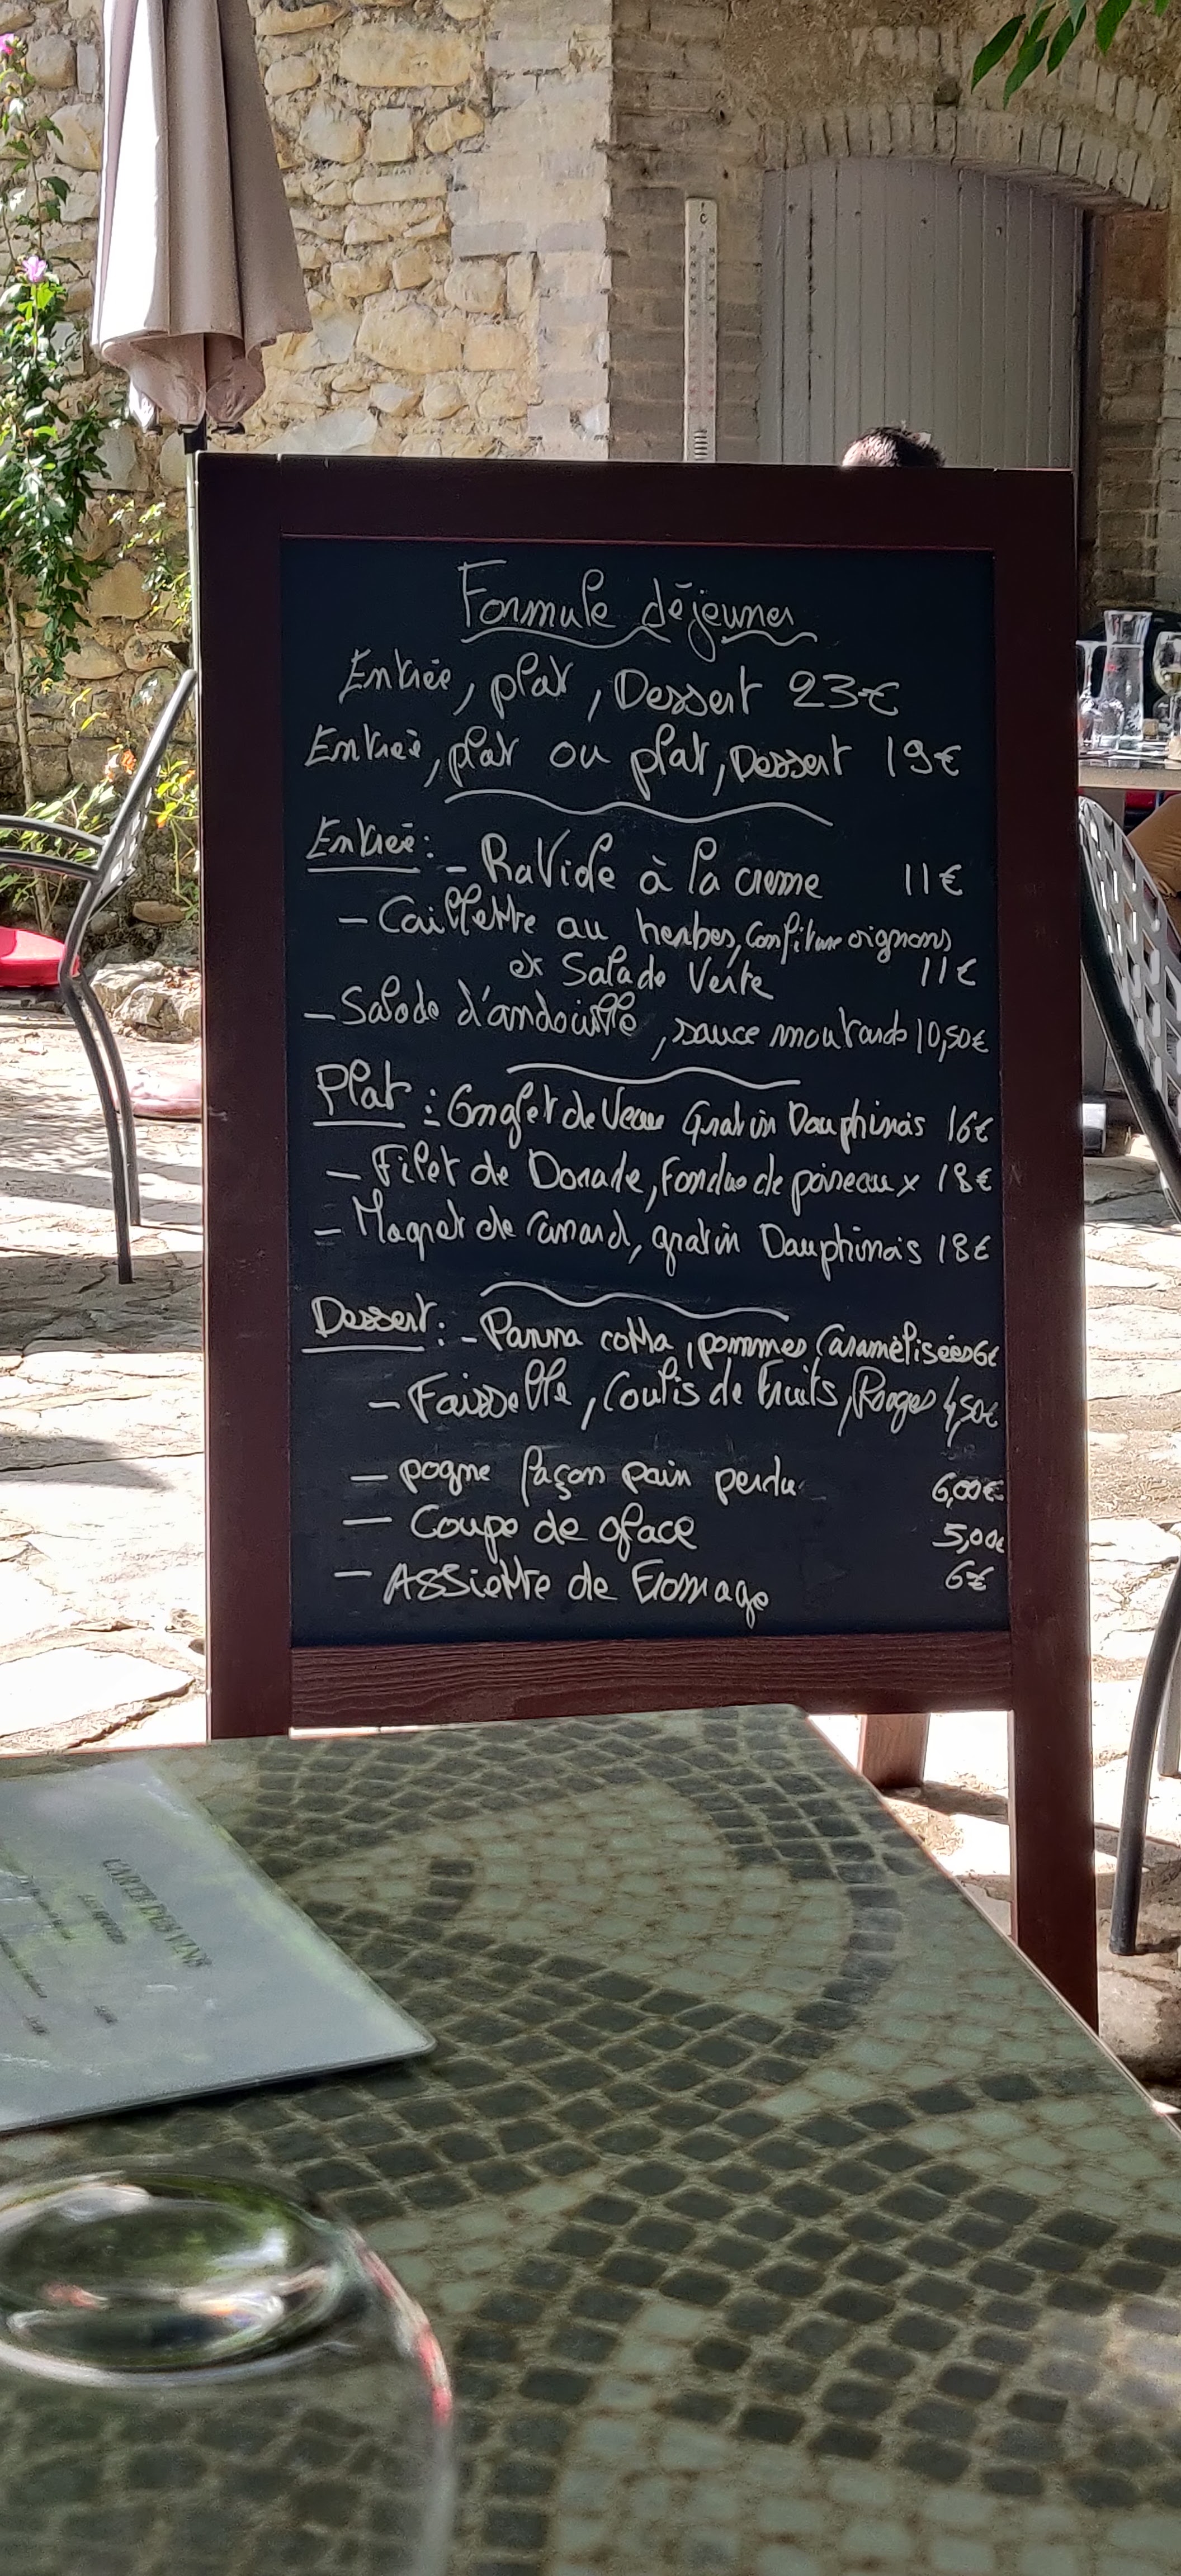 Formule déjeuner
Entrée, plat, Dessert 23€
Entrée, plat ou plat, Dessert 19€
Entrée: - RaViole à la creme 11€
- Caillette au herbes, Confiture oignons
et Salade Verte 11€
- Salade d'andouille, sauce moutarde 10,50€
Plat : Onglet de Veau Gratin Dauphinois 16€
- Filet de Dorade, Fondue de poireaux 18€
- Magret de Canard, gratin Dauphinois 18€
Dessert: - Panna cotta, pommes Caramélisées 6€
- Faisselle, Coulis de Fruits, Rouges 4,50€
- pogne façon pain perdu 6,00€
- Coupe de glace 5,00€
- Assiette de Fromage 6€
CARTE DES VINS